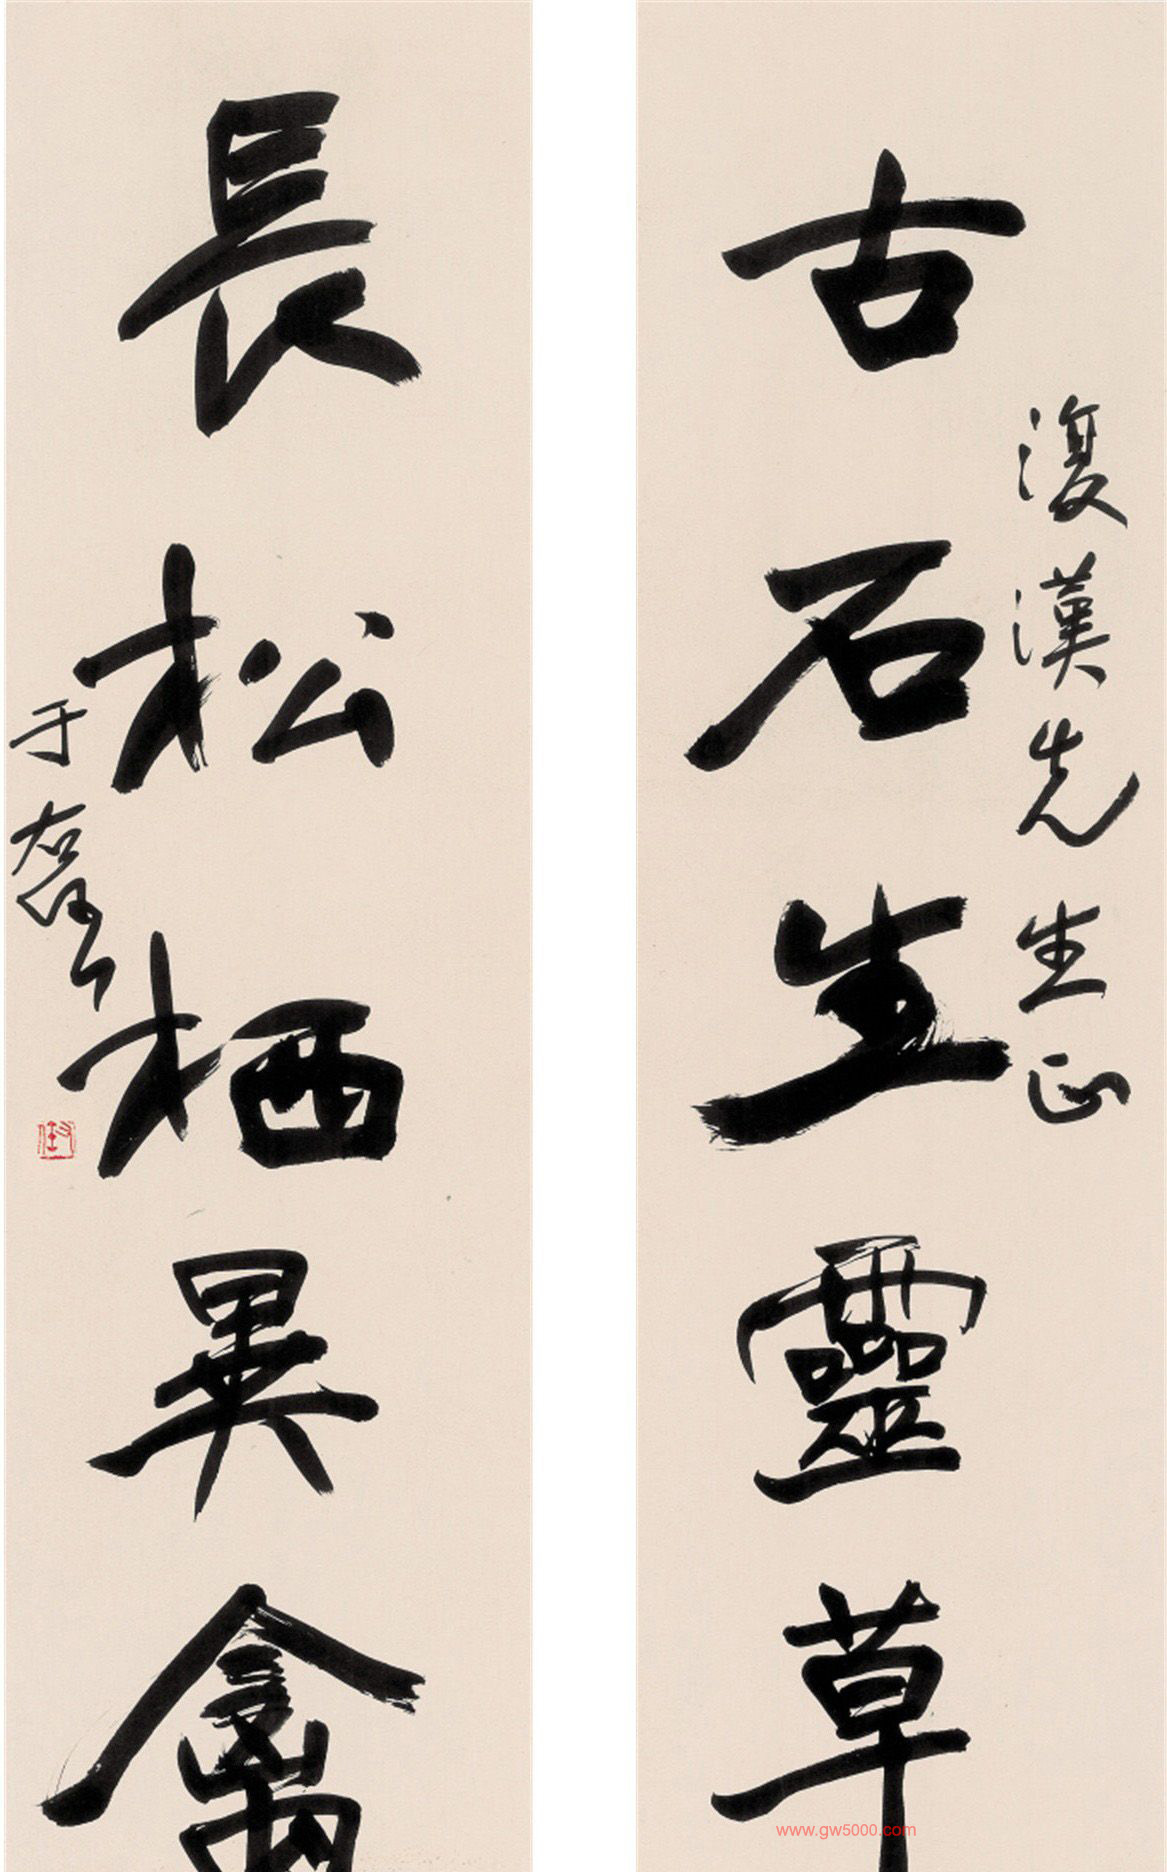 復漢先生正
古石生靈草
長松栖異禽
于右任
www.gw5000.com